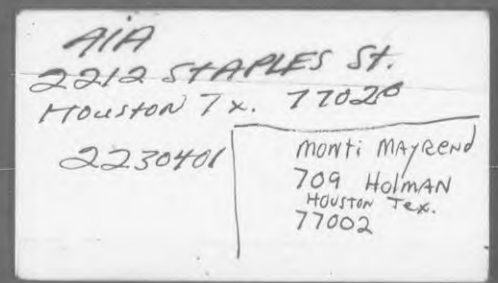 AIA
2212 STAPLES St.
Houston Tx. 77020
2230401
Monti MAyRend
709 HolMAN
Houston Tex.
77002